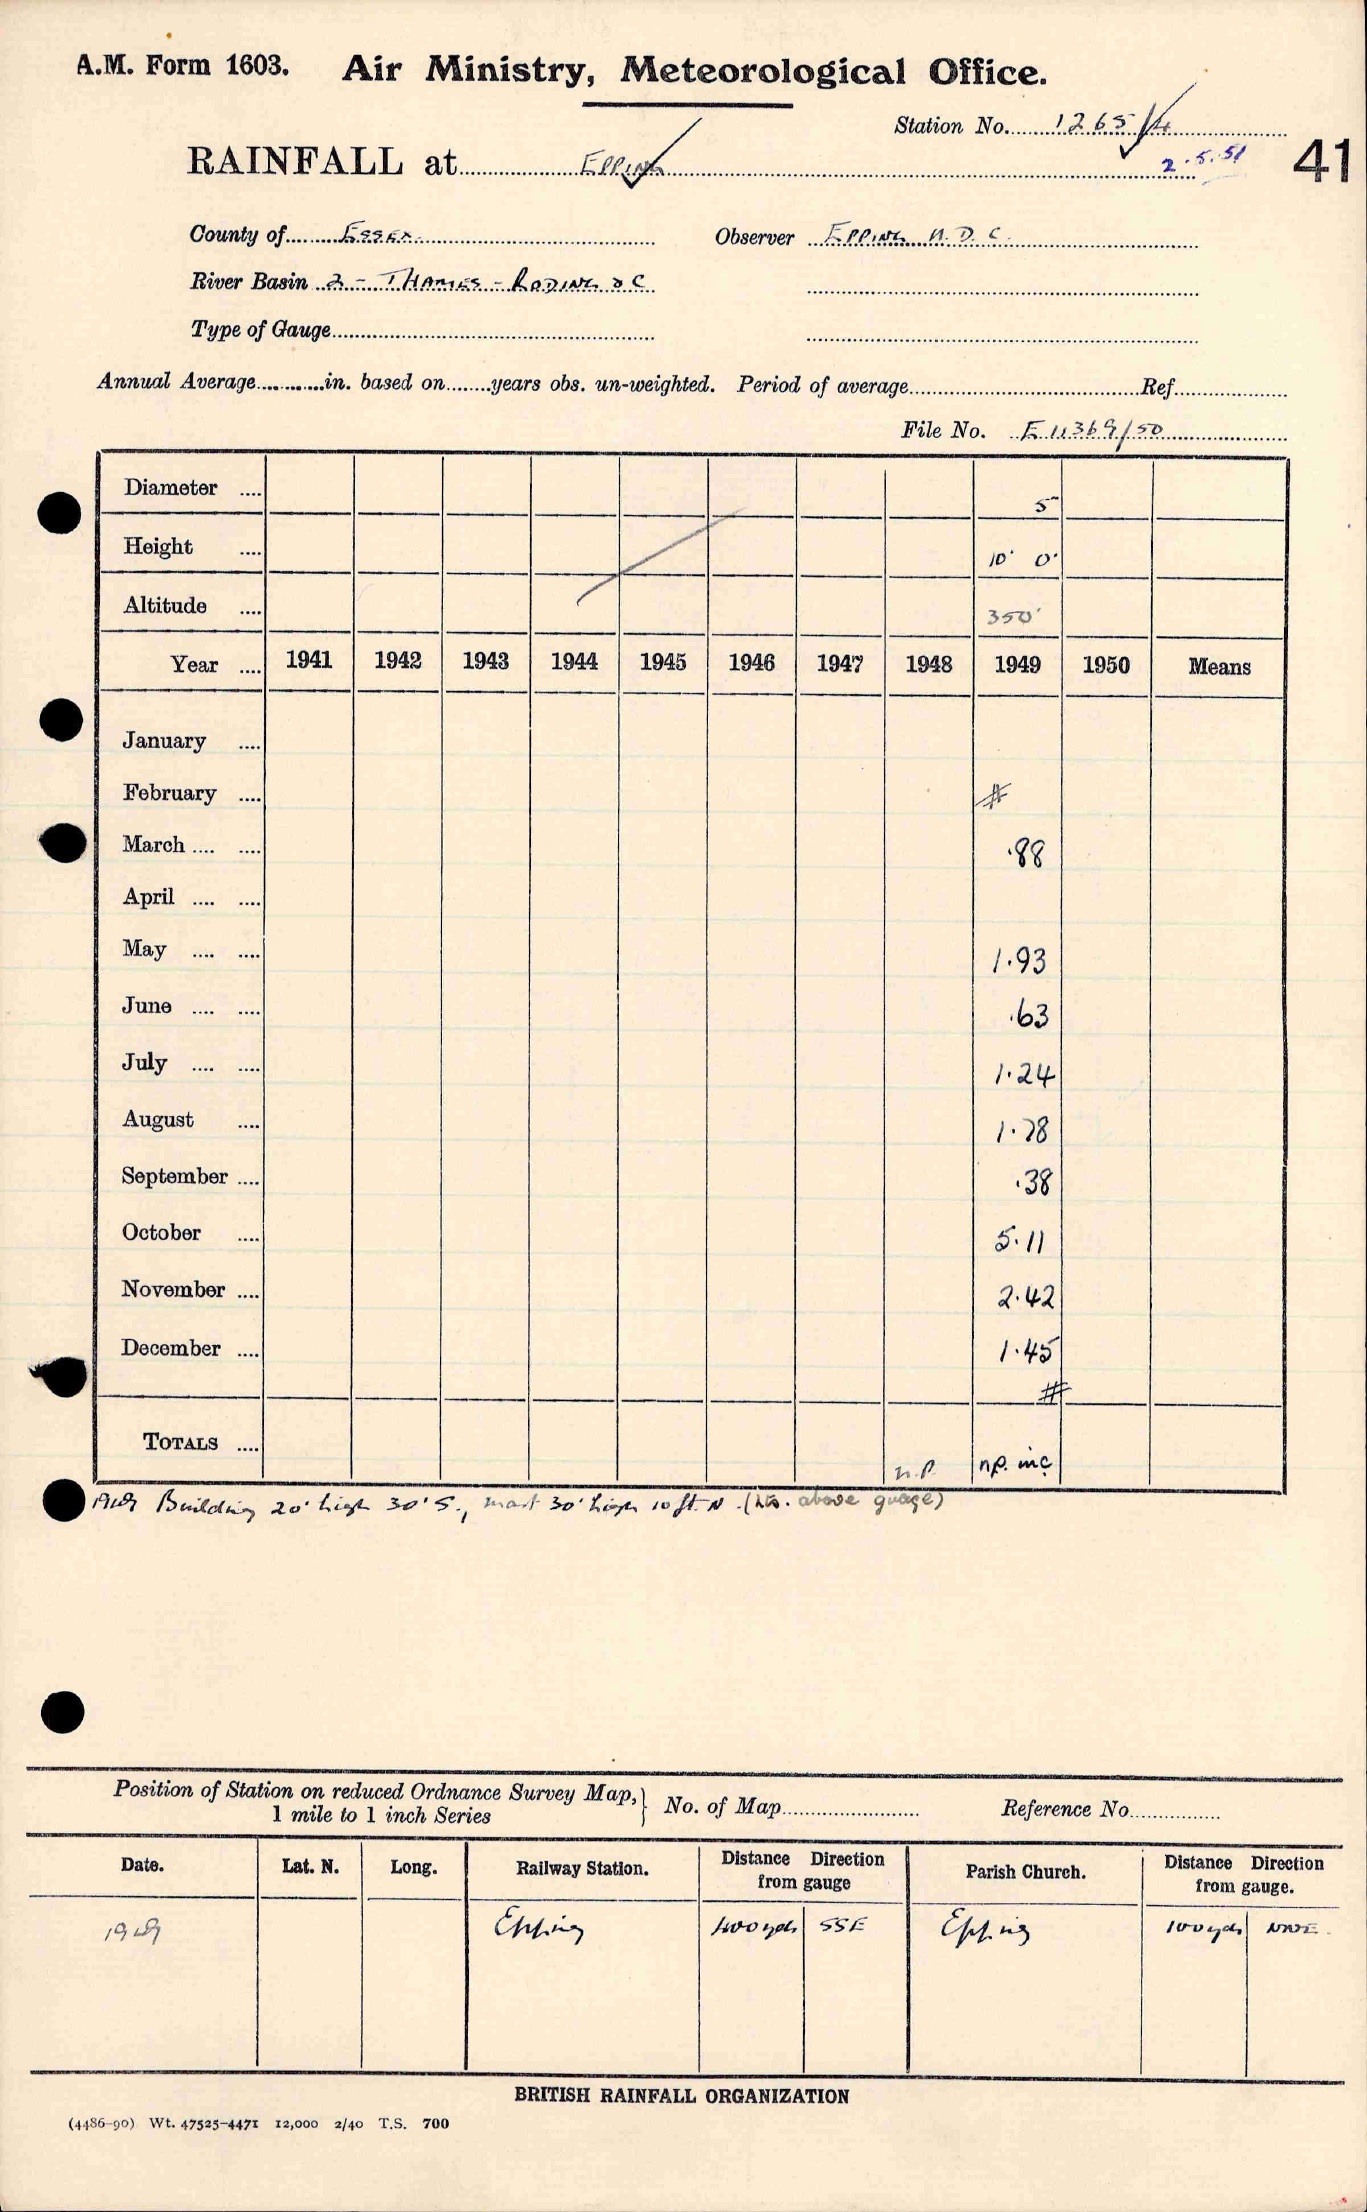 A.M. Form 1603. Air Ministry, Meteorological Office.
Station No. 1265/4
RAINFALL at EPPING 2.5.51 41
County of ESSEX. Observer EPPING U.D.C.
River Basin 2 - THAMES - RODING & C
Type of Gauge
Annual Average in. based on years obs. un-weighted. Period of average Ref.
File No. E 11369/50
Diameter .... 5"
Height .... 10' 0"
Altitude .... 350'
Year .... 1941 1942 1943 1944 1945 1946 1947 1948 1949 1950 Means
January ....
February .... #
March .... .... .88
April .... ....
May .... .... 1.93
June .... .... .63
July .... .... 1.24
August .... 1.78
September .... .38
October .... 5.11
November .... 2.42
December .... 1.45
#
TOTALS .... n.p. n.p. inc
1949 Building 20' high 30' S., mast 30' high 10 ft. N. (hts. above guage)
Position of Station on reduced Ordnance Survey Map, } No. of Map Reference No.
1 mile to 1 inch Series
Date. Lat. N. Long. Railway Station. Distance Direction from gauge Parish Church. Distance Direction from gauge.
1949 Epping 400 yds SSE Epping 100 yds NNE.
BRITISH RAINFALL ORGANIZATION
(4486-90) Wt. 47525-4471 12,000 2/40 T.S. 700